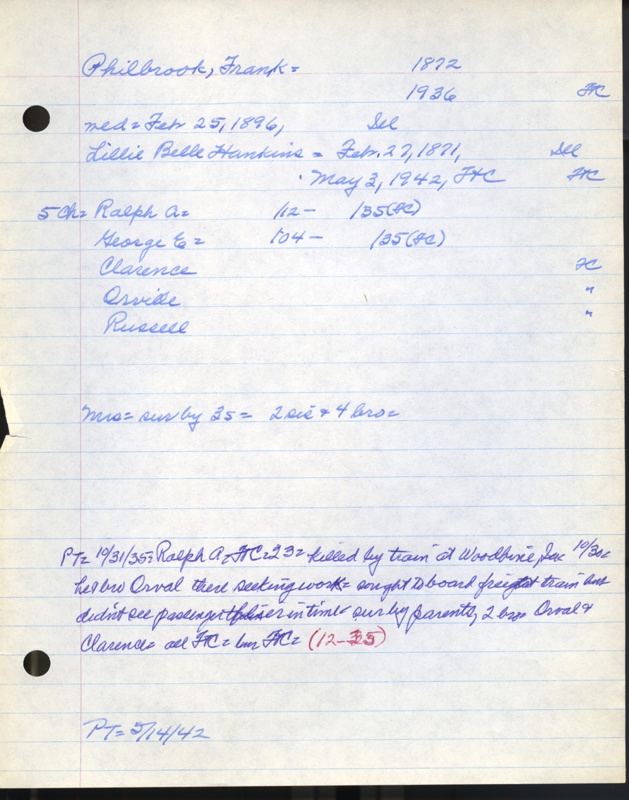 Philbrook, Frank = 1872
1936 FtC
med = Febr 25, 1896, Del
Lillie Belle Hankins = Feb. 27, 1871, Del
May 3, 1942, FtC FtC
5 Ch = Ralph A = 1/12 - 1/35 (FC)
George E = 1/04 - 1/35 (FC)
Clarence FC
Orville "
Russell "
Mrs = sur by 3s = 2 sis & 4 bro =
PT = 10/31/35 = Ralph A = FtC = 23 = killed by train at Woodbine, 10/30
he & bro Orval there seeking work = sought to board freight train but
didn't see passenger in time = sur by parents, 2 bro = Orval &
Clarence = all FtC = bur FtC = (12-35)
PT = 5/14/42